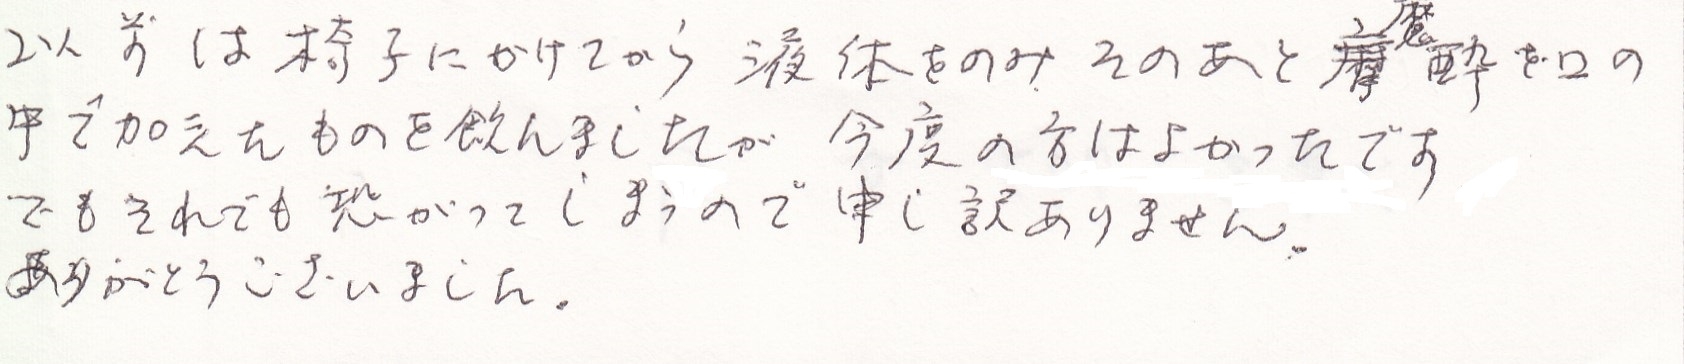 以前は椅子にかけてから液体をのみそのあと魔酔を口の
中で加えたものを飲んましたが今度の方はよかったです
でもそれでも恐がってしまうので申し訳ありません。
ありがとうございました。